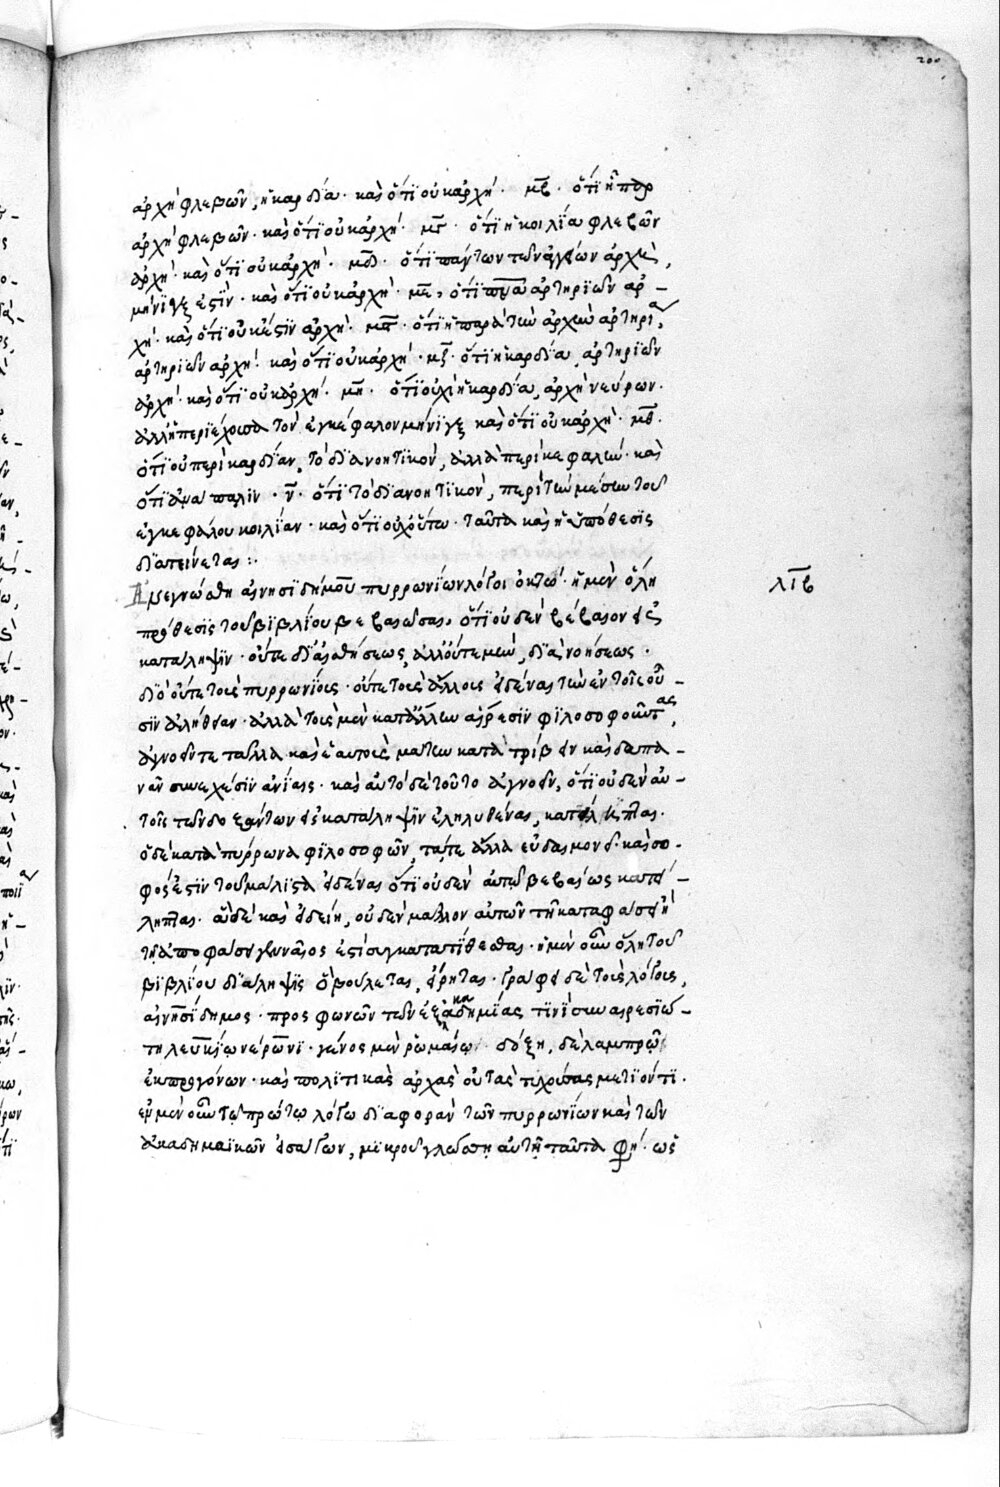 ἀρχὴ φλεβῶν, ἡ καρδία· καὶ ὅτι οὐκ ἀρχή· μβ· ὅτι ἧπαρ
ἀρχὴ φλεβῶν· καὶ ὅτι οὐκ ἀρχή· μγ· ὅτι ἡ κοιλία φλεβῶν
ἀρχή· καὶ ὅτι οὐκ ἀρχή· μδ· ὅτι πάντων τῶν ἀγγείων ἀρχαὶ,
μήνιγξ ἐστὶν· καὶ ὅτι οὐκ ἀρχή· με, ὅτι πνεύμων ἀρτηριῶν ἀρ-
χή· καὶ ὅτι οὐκ ἔστιν ἀρχή· μστ· ὅτι ἡ παρὰ τὴν ῥάχιν ἀρτηρία,
ἀρτηριῶν ἀρχή· καὶ ὅτι οὐκ ἀρχή· μζ· ὅτι ἡ καρδία, ἀρτηριῶν
ἀρχή· καὶ ὅτι οὐκ ἀρχή· μη· ὅτι οὐχὶ ἡ καρδία, ἀρχὴ νεύρων·
ἀλλ' ἡ περιέχουσα τὸν ἐγκέφαλον μήνιγξ καὶ ὅτι οὐκ ἀρχή· μθ·
ὅτι οὐ περὶ καρδίαν, τὸ διανοητικόν, ἀλλὰ περὶ κεφαλήν· καὶ
ὅτι ἀνάπαλιν· ν· ὅτι τὸ διανοητικόν, περὶ τὴν μέσην τοῦ
ἐγκεφάλου κοιλίαν· καὶ ὅτι οὐχ οὕτω· ταῦτα καὶ ἡ ὑπόθεσις
διατείνεται :·
Ἀνεγνώσθη αἰνησιδήμου πυρρωνίων λόγοι ὀκτώ· ἡ μὲν ὅλη
πρόθεσις τοῦ βιβλίου βεβαιῶσαι, ὅτι οὐδὲν βέβαιον εἰς
κατάληψιν· οὔτε δι' αἰσθήσεως, ἀλλ' οὔτε μὴν, διὰ νοήσεως·
διὸ οὔτε τοὺς πυρρωνίους· οὔτε τοὺς ἄλλους εἰδέναι τὴν ἐν τοῖς οὖ-
σιν ἀλήθειαν· ἀλλὰ τοὺς μὲν κατ' ἄλλην αἵρεσιν φιλοσοφοῦντας,
ἀγνοεῖν τε τἆλλα καὶ ἑαυτοὺς μάτην κατατρίβειν καὶ δαπα-
νᾶν συνεχέσιν ἀνίαις· καὶ αὐτὸ δὲ τοῦτο ἀγνοεῖν, ὅτι οὐδὲν αὐ-
τοῖς τῶν δοξάντων εἰς κατάληψιν ἐληλυθέναι, κατείληπται·
ὁ δὲ κατὰ πύρρωνα φιλοσοφῶν, τά τε ἄλλα εὐδαιμονεῖ· καὶ σο-
φός ἐστιν τοῦ μάλιστα εἰδέναι ὅτι οὐδὲν αὐτῷ βεβαίως κατεί-
ληπται· ἃ δὲ καὶ εἰδείη, οὐδὲν μᾶλλον αὐτῶν τῇ καταφάσει ἢ
τῇ ἀποφάσει γενναῖος ἐστι συγκατατίθεσθαι· ἡ μὲν οὖν ὅλη τοῦ
βιβλίου διάληψις ὃ βούλεται, εἴρηται· γράφει δὲ τοὺς λόγους,
αἰνησίδημος· προσφωνῶν τῶν ἐξ ἀκαδημίας τινὶ συναιρεσιώ-
τῃ λευκίῳ· γένος μὲν ῥωμαίῳ· δόξῃ, δὲ λαμπρῷ
ἐκ προγόνων· καὶ πολιτικὰς ἀρχὰς οὐ τὰς τυχούσας μετιόντι·
ἐν μὲν οὖν τῷ πρώτῳ λόγῳ διαφορὰν τῶν πυρρωνίων καὶ τῶν
ἀκαδημαϊκῶν εἰσάγων, μικροῦ γλώσσῃ αὐτῇ ταῦτα φησί· ὡς